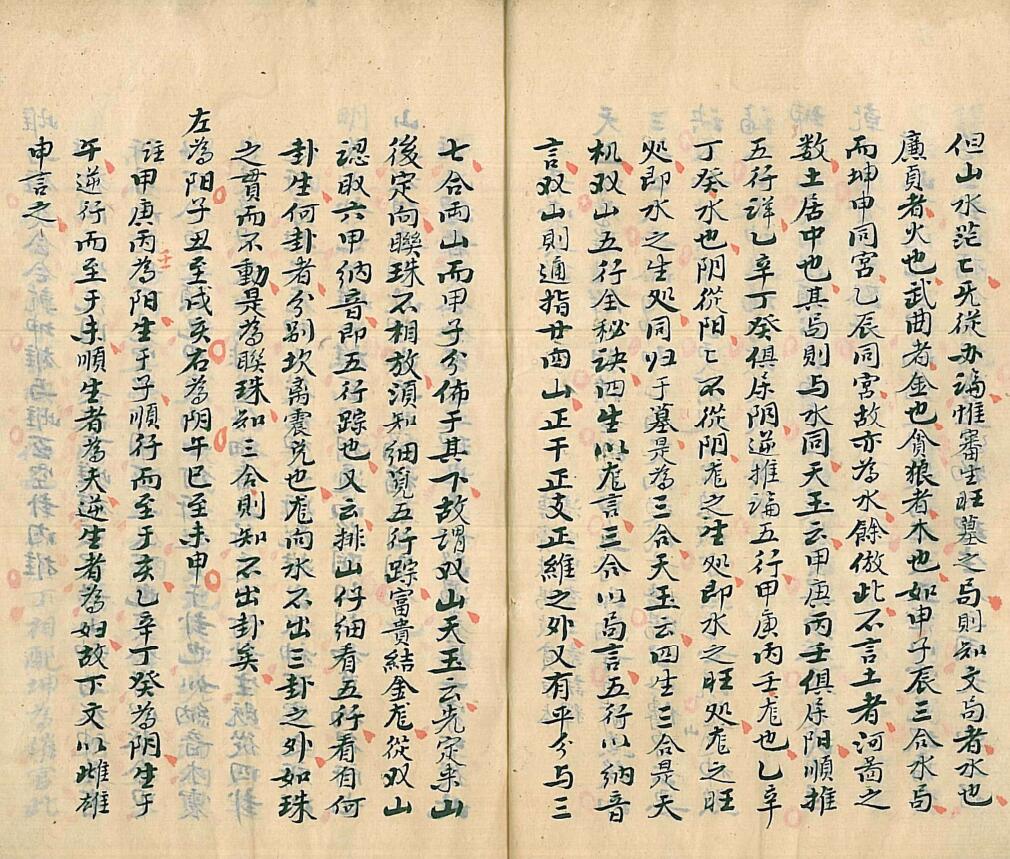 但山水茫〻旡從办論惟審生旺墓之局則知文局者水也
廉貞者火也武曲者金也貪狼者木也如申子辰三合水局
而坤申同宮乙辰同宮故亦為水餘倣此不言土者河啚之
数土居中也其局則与水同天玉云甲庚丙壬俱属阳順推
五行詳乙辛丁癸俱属阴逆推論五行甲庚丙壬龙也乙辛
丁癸水也阴從阳〻不從阴龙之生処即水之旺処龙之旺
処即水之生処同归于墓是為三合天玉云四生三合是天
机双山五行全秘诀四生以龙言三合以局言五行以納音
言双山則通指廿四山正干正支正維之外又有平分与三
七合両山而甲子分佈于其下故謂双山天玉云先定来山
後定向聨珠不相放須知細覓五行踪富貴結金龙從双山
認取六甲納音即五行踪也又云排山仔細看五行看自何
卦生何卦者分别坎离震兑也龙向水不出三卦之外如珠
之貫而不動是為聨珠知三合則知不出卦矣
左為阳子丑至戌亥右為阴午巳至未申
註甲庚丙壬為阳生于子順行而至于亥乙辛丁癸為阴生于
午逆行而至于未順生者為夫逆生者為妇故下文以雌雄
申言之